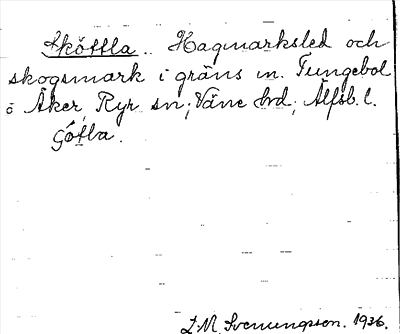 Sköttla.. Hagmarksled och
skogsmark i gräns m. Tungebol
o Åker, Ryr sn; Väne hrd; Älfsb. l.
Götla.
L. M. Svenungsson. 1936.